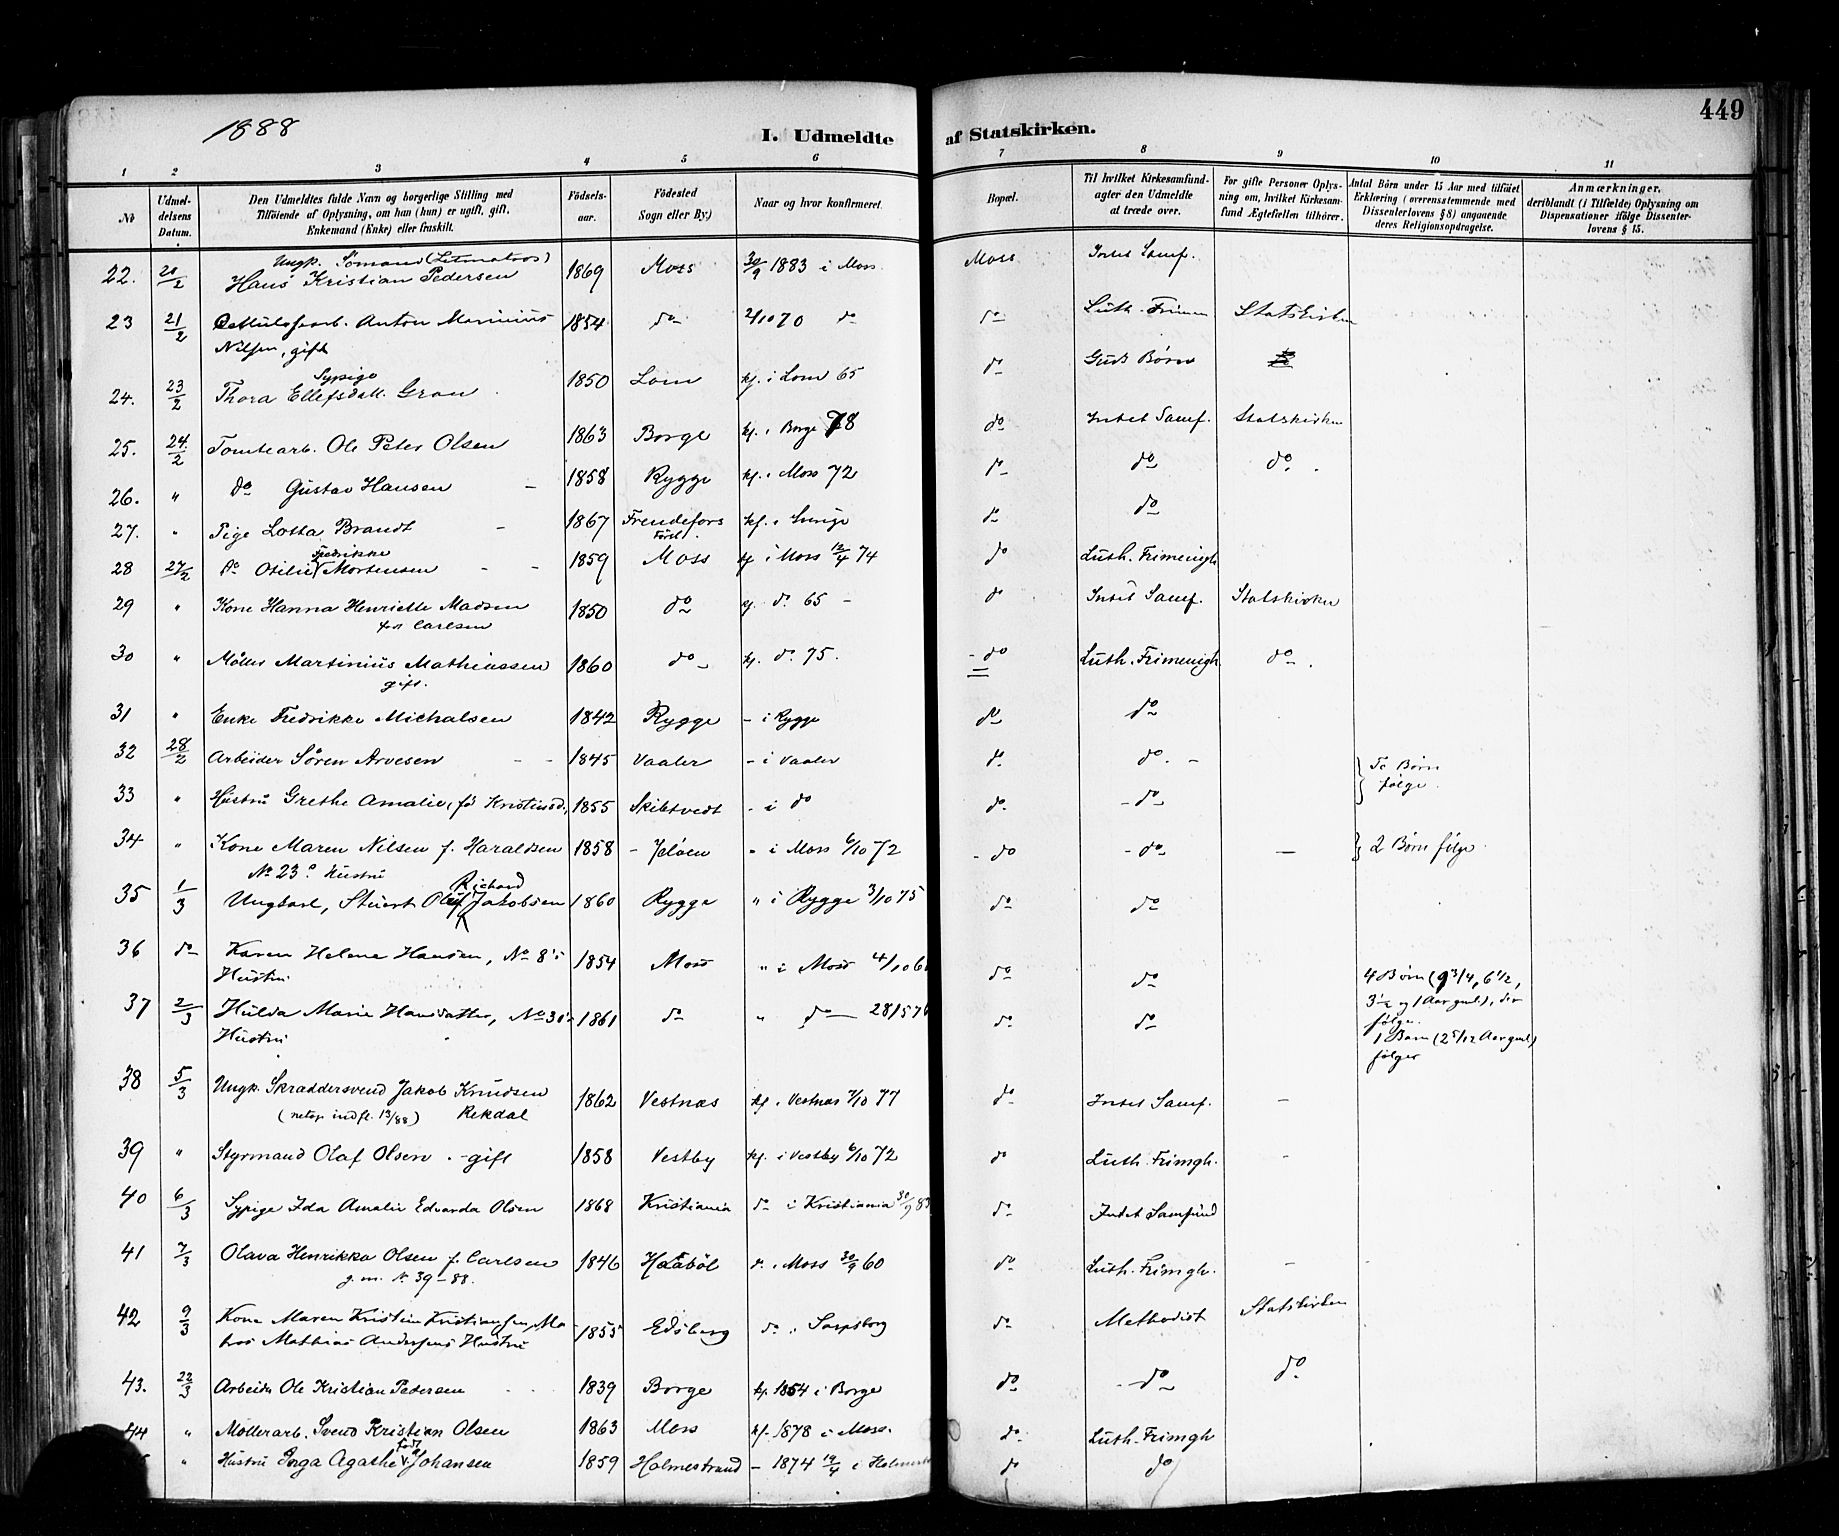 449
1888
I. Udmeldte af Statskirken.
1 2 3 4 5 6 7 8 9 10 11
No
Udmel-
delsens
Datum.
Den Udmeldtes fulde Navn og borgerlige Stilling med
Tilföiende af Oplysning, om han (hun) er ugift, gift,
Enkemand (Enke) eller fraskilt.
Födsels-
aar.
Födested
Sogn eller By.)
Naar og hvor konfirmeret.
Bopæl.
Til hvilket Kirkesamfund
agter den Udmeldte
at træde over.
For gifte Personer Oplys-
ning om, hvilket Kirkesam-
fund Ægtefællen tilhörer.
Antal Börn under 15 Aar med tilföiet
Erklæring (overensstemmende med
Dissenterlovens § 8) angaaende
deres Religionsopdragelse.
Anmærkninger,
deriblandt (i Tilfælde) Oplysning om
Dispensationer ifölge Dissenter-
lovens § 15.
Ungk. Sömand (Letmatros)
22. 20/2 Hans Kristian Pedersen 1869 Moss 30/9 1883 i Moss. Moss Intet Samf.
23 21/2 Anton Marinius 1854 do 2/10 70 do do Luth. Statskirken
Nilsen, gift
Sypige
24. 23/2 Thora Ellefsdatt. Gran 1850 Lom kf. i Lom 65 do Guds Børn
25. 24/2 Tomtearb. Ole Peter Olsen 1863 Borge kf. i Borge 78 do Intet Samf. Statskirken
26. " do Gustav Hansen – 1858 Rygge kf. i Moss 72 do do do.
27. " Pige Lotta Brandt – 1867 Frendefors kf. i do do
Fredrikke
28 27/2 do Otilie Mortensen – – 1859 Moss kf i Moss 12/4 74 do Luth. Frimenigh
29 " Kone Hanna Henriette Madsen 1850 do kf. do 65 – do Intet Samf. Statskirken
född Carlsen
30 " Møller Martinius Mathiassen 1860 do kf. do 75. do Luth. Frimenigh. do.
gift.
31 " Enke Fredrikke Michalsen 1842 Rygge – i Rygge do do
32 28/2 Arbeider Sören Arvesen – – 1845 Vaaler – i Vaaler do do. – } Børn
følge.
33 " Hustru Grethe Amalie, fö Kristensd. 1855 Skibtvedt – i do do. – do
34 " Kone Maren Nilsen f. Haraldsen 1858 – Jeløen " i Moss 6/10 72 – do – do – } 2 Børn følge.
No 23s Hustru
Richard
35 1/3 Ungkarl, Stuert Oluf Jakobsen 1860 Rygge " i Rygge 3/10 75 do do
36 do Karen Helene Hansen, No 8's 1854 Moss " i Moss 4/10 6 do do 4 Børn (9 3/4, 6 1/2,
Hustru 3 1/2 og 1 Aar gml), der
følge.
37 2/3 Hulda Marie Hansdatter, No 30's 1861 do " do 28/5 76 do do 1 Barn (2 5/12 Aar gml)
Hustru følger
38 5/3 Ungk. Skræddersvend Jakob Knudsen 1862 Vestnæs kf. i Vestnæs 7/10 77 do Intet Samf. –
(netop indfl. 13/88) Rekdal
39 " Styrmand Olaf Olsen. – gift 1858 Vestby kf. i Vestby 6/10 72 do Luth. Frimgh. –
40 6/3 Sypige Ida Amalie Edvarda Olsen 1868 Kristiania do i Kristiania 30/9 83 do Intet Samfund
41 7/3 Olava Henrikke Olsen f. Carlsen 1846 Haabøl do i Moss 30/9 60 do Luth. Frimgh. –
g. m. No 39–88.
42 9/3 Kone Maren Kristine Kristiansen, Ma- 1855 Edsberg do i Sarpsborg do Methodist Statskirken
tros Mathias Andersens Hustru
43. 22/3 Arbeider Ole Kristian Pedersen 1839 Borge kf. 1854 i Borge do – do do
44 " Møllerarb. Svend Kristian Olsen 1863 Moss kf. 1878 i Moss. do. Luth. Frimgh
född
" Hustru Inga Agathe Johansen 1859 Holmestrand – 1874 12/4 i do do